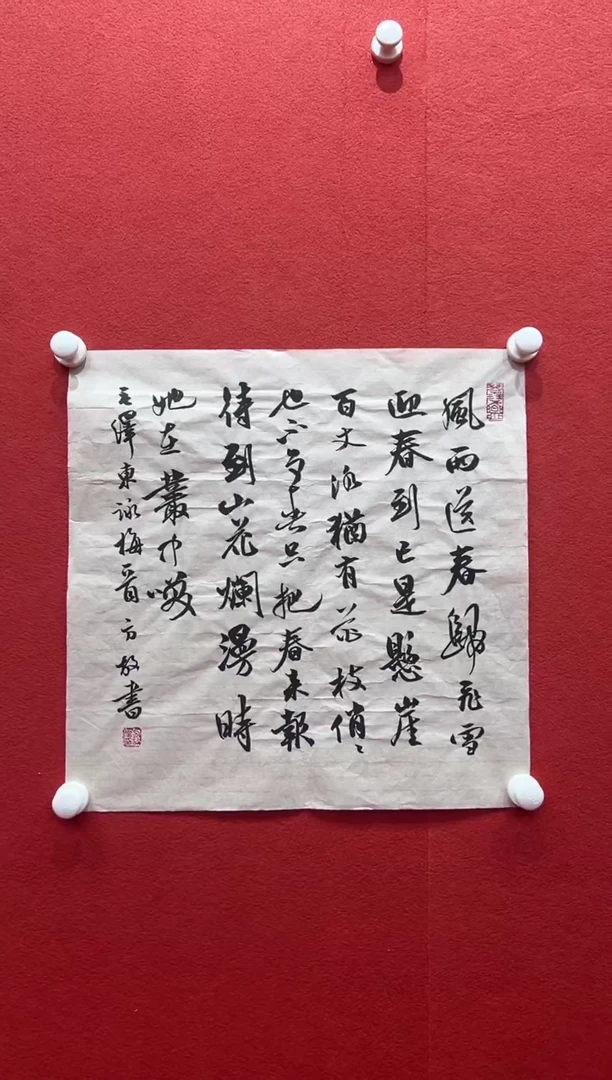 風雨送春歸飛雪
迎春到已是懸崖
百丈冰猶有花枝俏〻
也不爭春只把春來報
待到山花爛漫時
她在叢中咲
毛澤東詠梅 方書